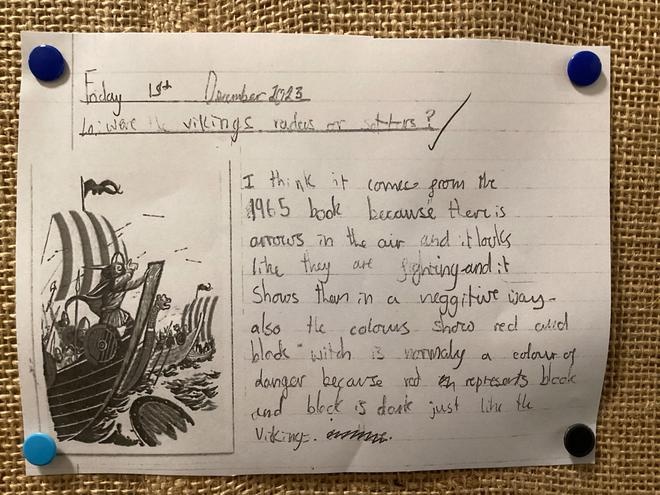 Friday 1st December 2023
were the vikings raders or settlers?
I think it comes from the
1965 book because there is
arrows in the air and it looks
like they are fighting and it
shows them in a neggitive way.
also the colours show red and
black witch is normaly a colour of
danger because red represents blood
and black is dark just like the
vikings.